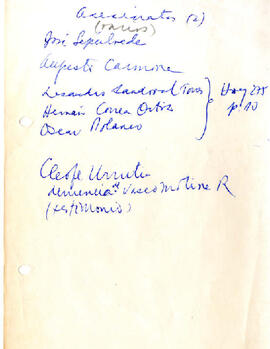 Asesinatos (2)
(varios)
José Sepúlveda
Augusto Carmona
Lisandro Sandoval Torres
Hernán Correa Ortiz
Oscar Polanco
Hoy 275
p 10
Cleofe Urrutia
denuncia Vasco Molina R
(testimonio)